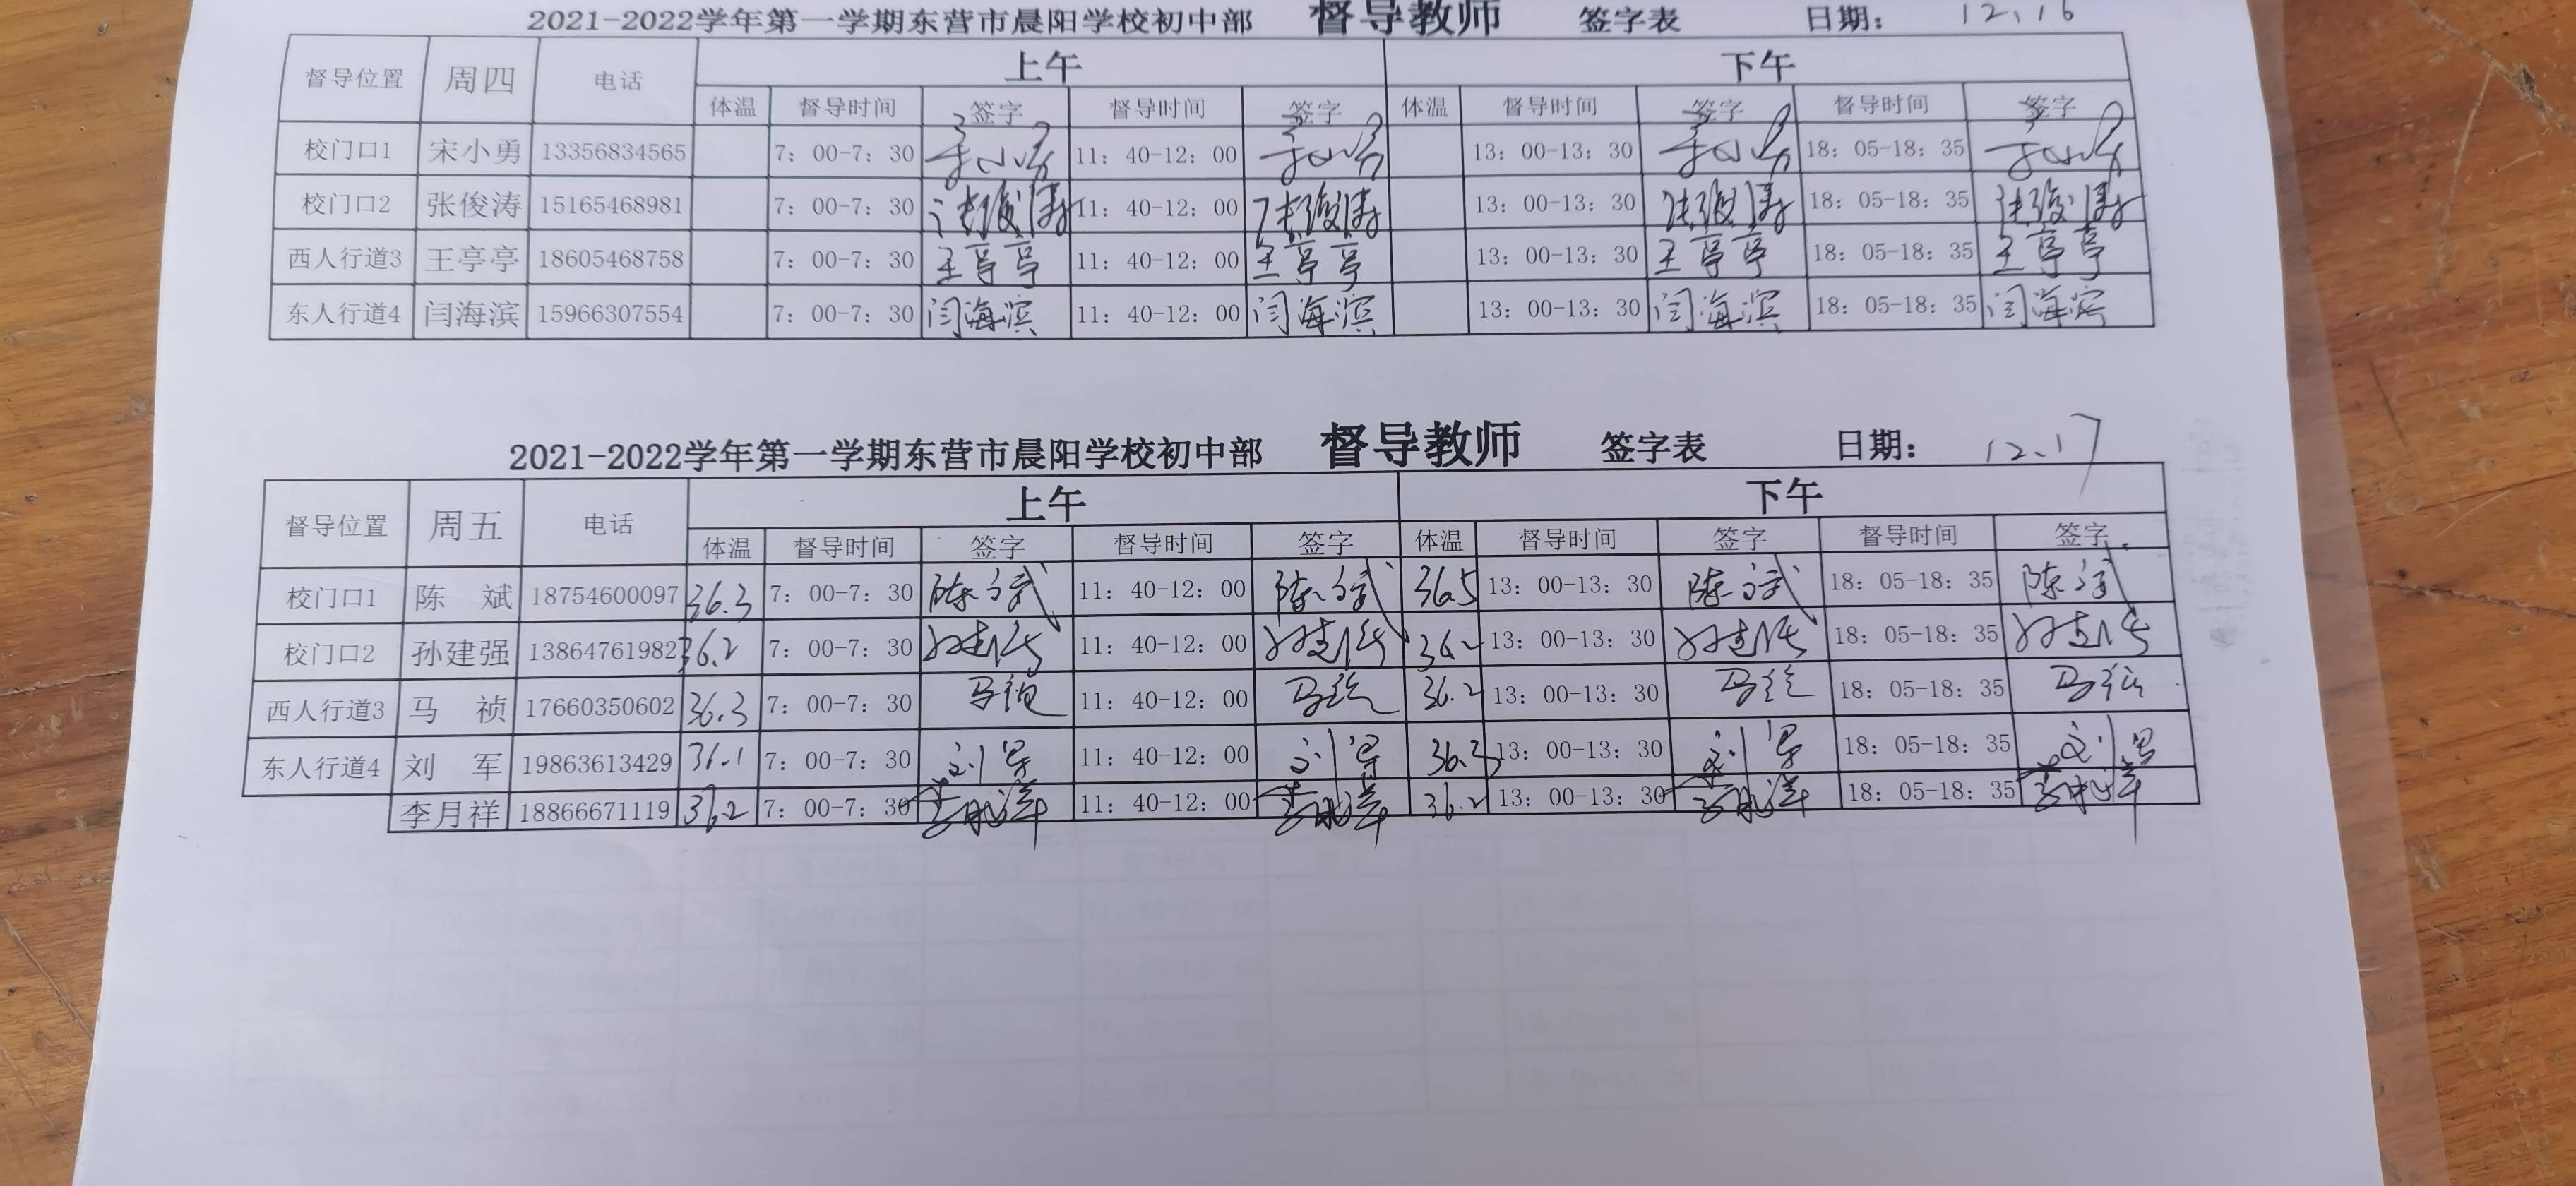 2021-2022学年第一学期东营市晨阳学校初中部 督导教师 签字表 日期： 12.16
督导位置 周四 电话 上午 下午
体温 督导时间 签字 督导时间 签字 体温 督导时间 签字 督导时间 签字
校门口1 宋小勇 13356834565 7：00-7：30 宋小勇 11：40-12：00 宋小勇 13：00-13：30 宋小勇 18：05-18：35 宋小勇
校门口2 张俊涛 15165468981 7：00-7：30 张俊涛 11：40-12：00 张俊涛 13：00-13：30 张俊涛 18：05-18：35 张俊涛
西人行道3 王亭亭 18605468758 7：00-7：30 王亭亭 11：40-12：00 王亭亭 13：00-13：30 王亭亭 18：05-18：35 王亭亭
东人行道4 闫海滨 15966307554 7：00-7：30 闫海滨 11：40-12：00 闫海滨 13：00-13：30 闫海滨 18：05-18：35 闫海滨
2021-2022学年第一学期东营市晨阳学校初中部 督导教师 签字表 日期： 12.17
督导位置 周五 电话 上午 下午
体温 督导时间 签字 督导时间 签字 体温 督导时间 签字 督导时间 签字
校门口1 陈 斌 18754600097 36.3 7：00-7：30 陈斌 11：40-12：00 陈斌 36.5 13：00-13：30 陈斌 18：05-18：35 陈斌
校门口2 孙建强 13864761982 36.2 7：00-7：30 孙建强 11：40-12：00 孙建强 36.2 13：00-13：30 孙建强 18：05-18：35 孙建强
西人行道3 马 祯 17660350602 36.3 7：00-7：30 马祯 11：40-12：00 马祯 36.2 13：00-13：30 马祯 18：05-18：35 马祯
东人行道4 刘 军 19863613429 36.1 7：00-7：30 刘军 11：40-12：00 刘军 36.3 13：00-13：30 刘军 18：05-18：35 刘军
李月祥 18866671119 36.2 7：00-7：30 李月祥 11：40-12：00 李月祥 36.2 13：00-13：30 李月祥 18：05-18：35 李月祥